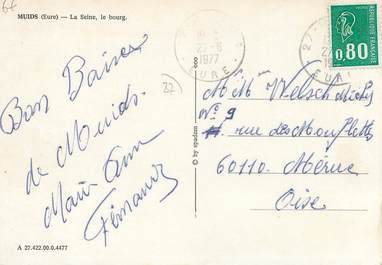 6€
MUIDS (Eure) — La Seine, le bourg.
27-6
1977
EURE
REPUBLIQUE FRANÇAISE
0,80
Bons Baisers
de Muids.
Marie Ann
Fernand
27
© by spadem
M&M Welsch Michel
N° 9
rue des Mouflettes
60110. Méru
Oise
A 27.422.00.0.4477